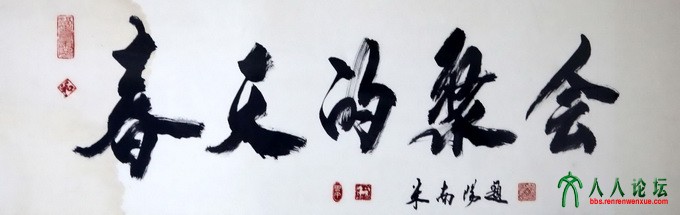 春天的聚会
米南阳题
人人论坛
bbs.renrenwenxue.com